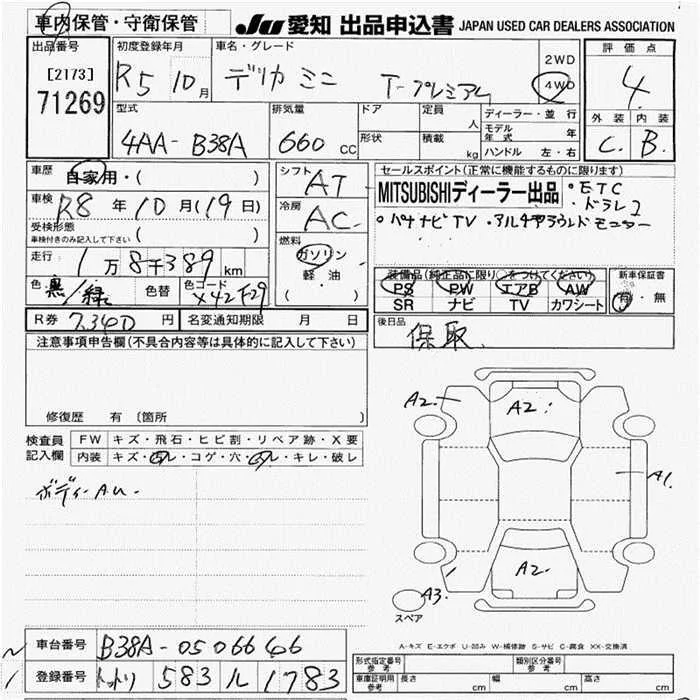 車内保管・守衛保管
JU 愛知 出品申込書 JAPAN USED CAR DEALERS ASSOCIATION
出品番号
[2173]
71269
初度登録年月
R5 10月
車名・グレード
デリカ ミニ T-プレミアム
2WD
4WD
評価点
4
外装 内装
C. B.
型式
4AA-B38A
排気量
660 CC
ドア
形状
定員 人
積載 kg
ディーラー・並行
モデル年式 年
ハンドル 左・右
車歴
自家用・( )
車検
R8年10月(19日)
受検形態
車検付きのみ記入して下さい ( )
走行
1万8千389km
色 黒/緑 色替 色コード X42 F29
シフト AT
冷房 AC
燃料
ガソリン
軽・油
( )
セールスポイント(正常に機能するものに限ります)
MITSUBISHIディーラー出品 ・ETC
・ドラレコ
・パナナビTV ・アルチアラウンドモニター
装備品(純正品に限り○をつけてください)
PS PW エアB AW
SR ナビ TV カワシート
新車保証書
有・無
R券 7,340円 名変通知期限 月 日
後日品
保取
注意事項申告欄(不具合内容等は具体的に記入して下さい)
修復歴 有 〔箇所 〕
検査員記入欄
FW キズ・飛石・ヒビ割・リペア跡・X要
内装 キズ・汚レ・コゲ・穴・スレ・キレ・破レ
ボディーA.U.
A2.
A2.
A1.
A2.
A3.
スペア
A-キズ E-エクボ U-凹み W-補修跡 S-サビ C-腐食 XX-交換済
車台番号 B38A-0506646
登録番号 583 ル 1783
形式指定番号 参考
類別区分番号 参考
車庫証明用 参考 長さ cm 幅 cm 高さ cm